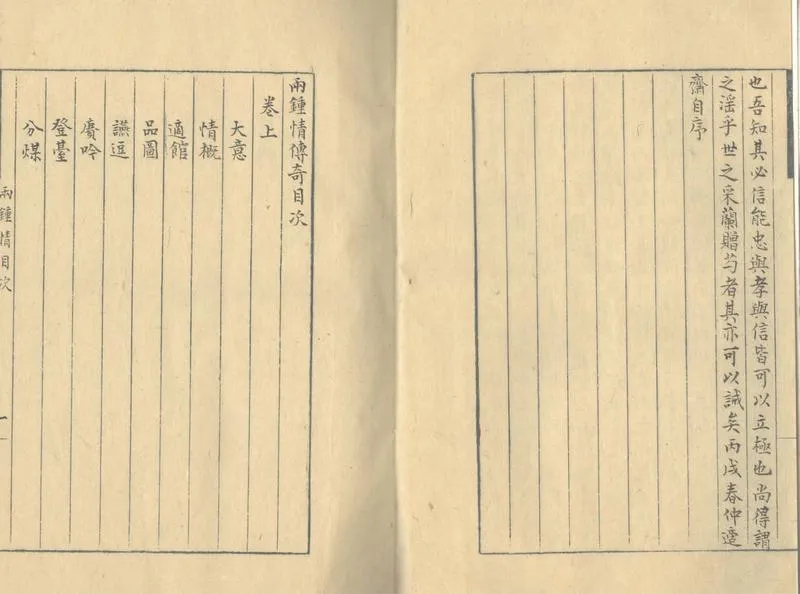 也吾知其必信能忠與孝與信皆可以立極也尚得謂
之淫乎世之采蘭贈芍者其亦可以誡矣丙戌春仲遯
齋自序
兩鍾情傳奇目次
卷上
大意
情概
適館
品圖
讌逗
賡吟
登臺
分媒
兩鍾情目次
一